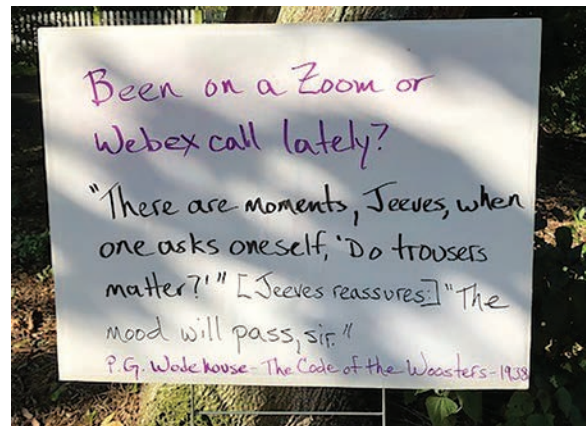 Been on a Zoom or
Webex call lately?
"There are moments, Jeeves, when
one asks oneself, 'Do trousers
matter?'" [Jeeves reassures:] "The
mood will pass, sir."
P.G. Wodehouse - The Code of the Woosters - 1938